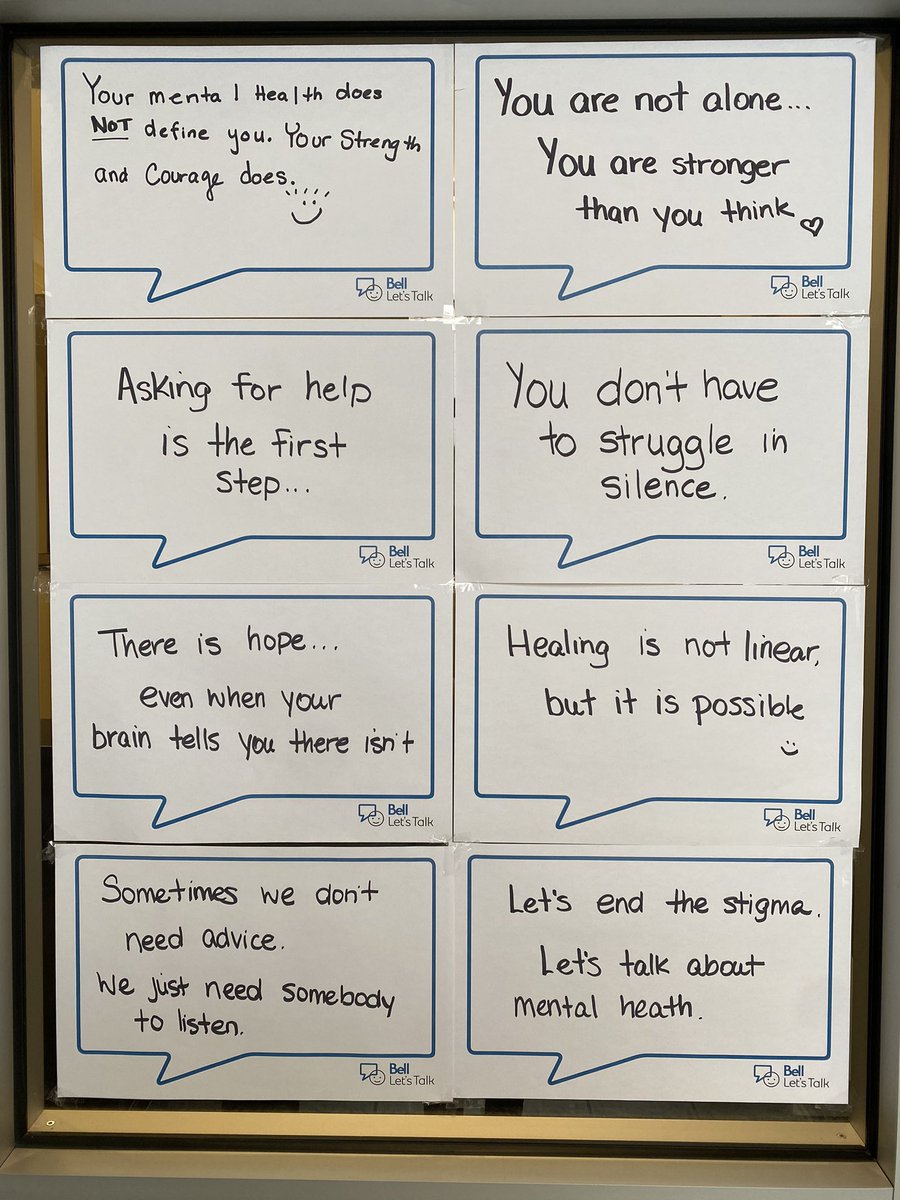 Your mental Health does
NOT define you. Your Strength
and Courage does.
Bell
Let's Talk
You are not alone...
You are stronger
than you think
Bell
Let's Talk
Asking for help
is the first
step...
Bell
Let's Talk
You don't have
to struggle in
silence.
Bell
Let's Talk
There is hope...
even when your
brain tells you there isn't
Bell
Let's Talk
Healing is not linear,
but it is possible
Bell
Let's Talk
Sometimes we don't
need advice.
We just need somebody
to listen.
Bell
Let's Talk
Let's end the stigma.
Let's talk about
mental heath.
Bell
Let's Talk